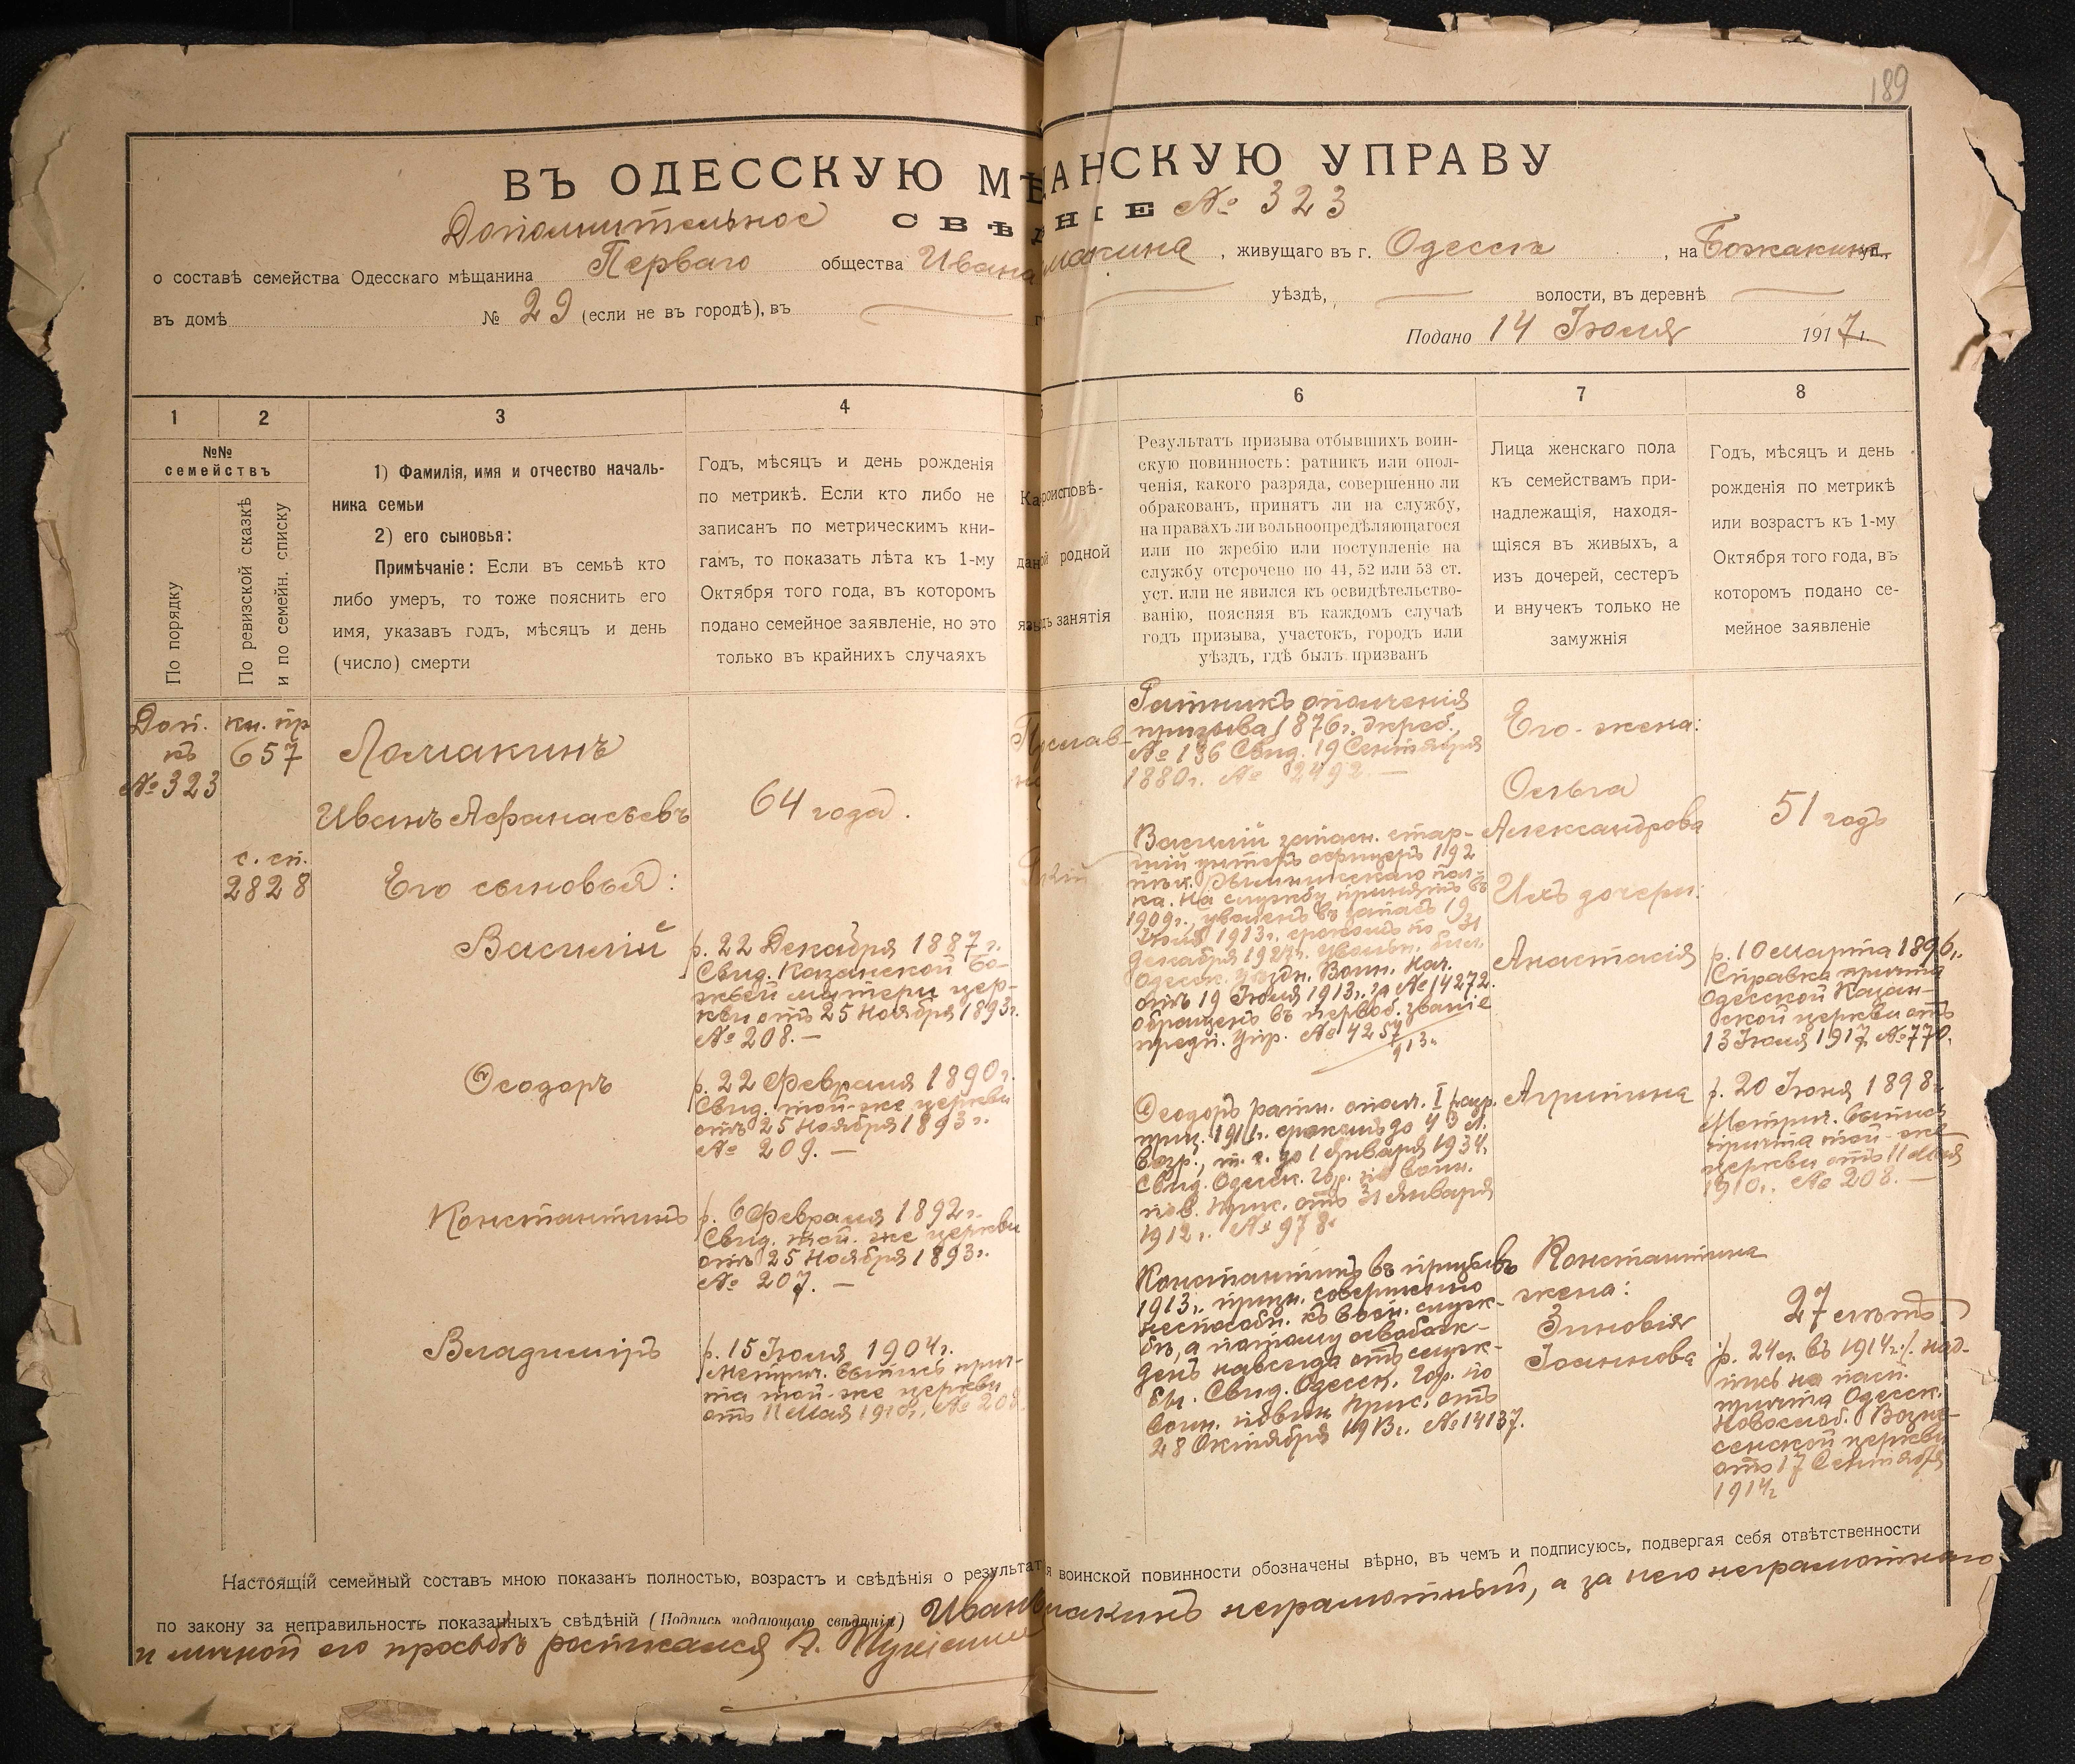 189
ВЪ ОДЕССКУЮ МѢЩАНСКУЮ УПРАВУ
Дополнительное СВѢДѢНІЕ № 323
о составѣ семейства Одесскаго мѣщанина Перваго общества Ивана Ломакина, живущаго въ г. Одесса, на
въ домѣ № 29 (если не въ городѣ), въ уѣздѣ, волости, въ деревнѣ
Подано 14 Іюля 1917 г.
1 2 3 4 5 6 7 8
№№ семействъ
По порядку
По ревизской сказкѣ и по семейн. списку
1) Фамилія, имя и отчество началь-
ника семьи
2) его сыновья:
Примѣчаніе: Если въ семьѣ кто
либо умеръ, то тоже пояснить его
имя, указавъ годъ, мѣсяцъ и день
(число) смерти
Годъ, мѣсяцъ и день рожденія
по метрикѣ. Если кто либо не
записанъ по метрическимъ кни-
гамъ, то показать лѣта къ 1-му
Октября того года, въ которомъ
подано семейное заявленіе, но это
только въ крайнихъ случаяхъ
родной
занятія
Результатъ призыва отбывшихъ воин-
скую повинность: ратникъ или опол-
ченія, какого разряда, совершенно ли
обракованъ, принятъ ли на службу,
на правахъ ли вольноопредѣляющагося
или по жребію или поступленіе на
службу отсрочено по 44, 52 или 53 ст.
уст. или не явился къ освидѣтельство-
ванію, поясняя въ каждомъ случаѣ
годъ призыва, участокъ, городъ или
уѣздъ, гдѣ былъ призванъ
Лица женскаго пола
къ семействамъ при-
надлежащія, находя-
щіяся въ живыхъ, а
изъ дочерей, сестеръ
и внучекъ только не
замужнія
Годъ, мѣсяцъ и день
рожденія по метрикѣ
или возрастъ къ 1-му
Октября того года, въ
которомъ подано се-
мейное заявленіе
Доп.
къ
№ 323
кн. пр
657
с. сп.
2828
Ломакинъ
Иванъ Афанасьевъ
Его сыновья:
Василій
Ѳеодоръ
Константинъ
Владиміръ
64 года.
р. 22 Декабря 1887 г.
Свид. Казанской Бо-
жьей матери цер-
кви отъ 25 Ноября 1893 г.
№ 208. —
р. 22 Февраля 1890 г.
Свид. той-же церкви
отъ 25 Ноября 1893 г.
№ 209. —
р. 6 Февраля 1892 г.
Свид. той-же церкви
отъ 25 Ноября 1893 г.
№ 207. —
р. 15 Іюля 1904 г.
Метрич. выпись прич-
та той-же церкви
отъ 11 Мая 1910 г. № 208.
Ратникъ ополченія
призыва 1876 г. жреб.
№ 136 Свид. 19 Сентября
1880 г. № 2492. —
Василій запасн. стар-
шій унтеръ офицеръ 192
пѣх. Рымникскаго пол-
ка. На службу принятъ въ
1909 г., уволенъ въ запасъ 19
Іюля 1913 г. срокомъ по 31
Декабря 1927 г. Увольн. бил.
Одесск. Уѣздн. Воин. Нач.
отъ 19 Іюля 1913 г. за № 14272.
обращенъ въ первоб. званіе
предп. Упр. № 4257
913 г.
Ѳеодоръ ратн. опол. I разр.
приз. 1911 г. срокомъ до 43 л.
возр., т. е. до 1 Января 1934 г.
Свид. Одесск. Гор. по воин.
пов. Прис. отъ 31 Января
1912 г. № 978.
Константинъ въ призывъ
1913 г. призн. совершенно
неспособн. къ воен. служ-
бѣ, а потому освобож-
денъ навсегда отъ служ-
бы. Свид. Одесск. Гор. по
воин. повин. Прис. отъ
28 Октября 1913 г. № 14137.
Его-жена:
Ольга
Александрова
Ихъ дочери:
Анастасія
Агрипина
Константина
жена:
Зиновія
Іоаннова
51 годъ
р. 10 Марта 1896 г.
Справка причта
Одесской Казан-
ской церкви отъ
13 Іюля 1917 г. № 770.
р. 20 Іюня 1898 г.
Метрич. выпись
причта той-же
церкви отъ 11 Мая
1910 г. № 208. —
27 лѣтъ
р. 24 л. въ 1914 г. / над-
пись на пасп.
причта Одесск.
Новослоб. Возне-
сенской церкви
отъ 17 Сентября
1914 г.
Настоящій семейный составъ мною показанъ полностью, возрастъ и свѣдѣнія о результатѣ воинской повинности обозначены вѣрно, въ чемъ и подписуюсь, подвергая себя отвѣтственности
по закону за неправильность показанныхъ свѣдѣній (Подпись подающаго свѣдѣнія) Иванъ Ломакинъ неграмотный, а за него неграмотнаго
и личной его просьбѣ росписался